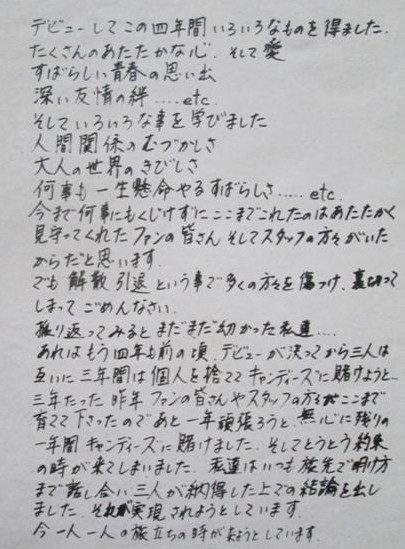 デビューしてこの四年間いろいろなものを得ました.
たくさんのあたたかな心. そして愛
すばらしい青春の思い出
深い友情の絆.....etc.
そしていろいろな事を学びました
人間関係のむづかしさ
大人の世界のきびしさ
何事も一生懸命やるすばらしさ.....etc.
今まで何事にもくじけずにここまでこれたのはあたたかく
見守ってくれたファンの皆さんそしてスタッフの方々がいた
からだと思います.
でも解散引退という事で多くの方々を傷つけ.裏切って
しまってごめんなさい.
振り返ってみるとまだまだ幼かった私達....
あれはもう四年も前の頃.デビューが決ってから三人は
互いに三年間は個人を捨ててキャンディーズに賭けようと...
三年たった昨年ファンの皆さんやスタッフの方々がここまで
育てて下さったのであと一年頑張ろうと.無心に残りの
一年間キャンディーズに賭けました.そしてとうとう約束
の時が来てしまいました. 私達はいつも旅先で明け方
まで話し合い三人が納得した上での結論を出し
ました. それが実現されようとしています.
今一人一人の旅立ちの時が来ようとしています.